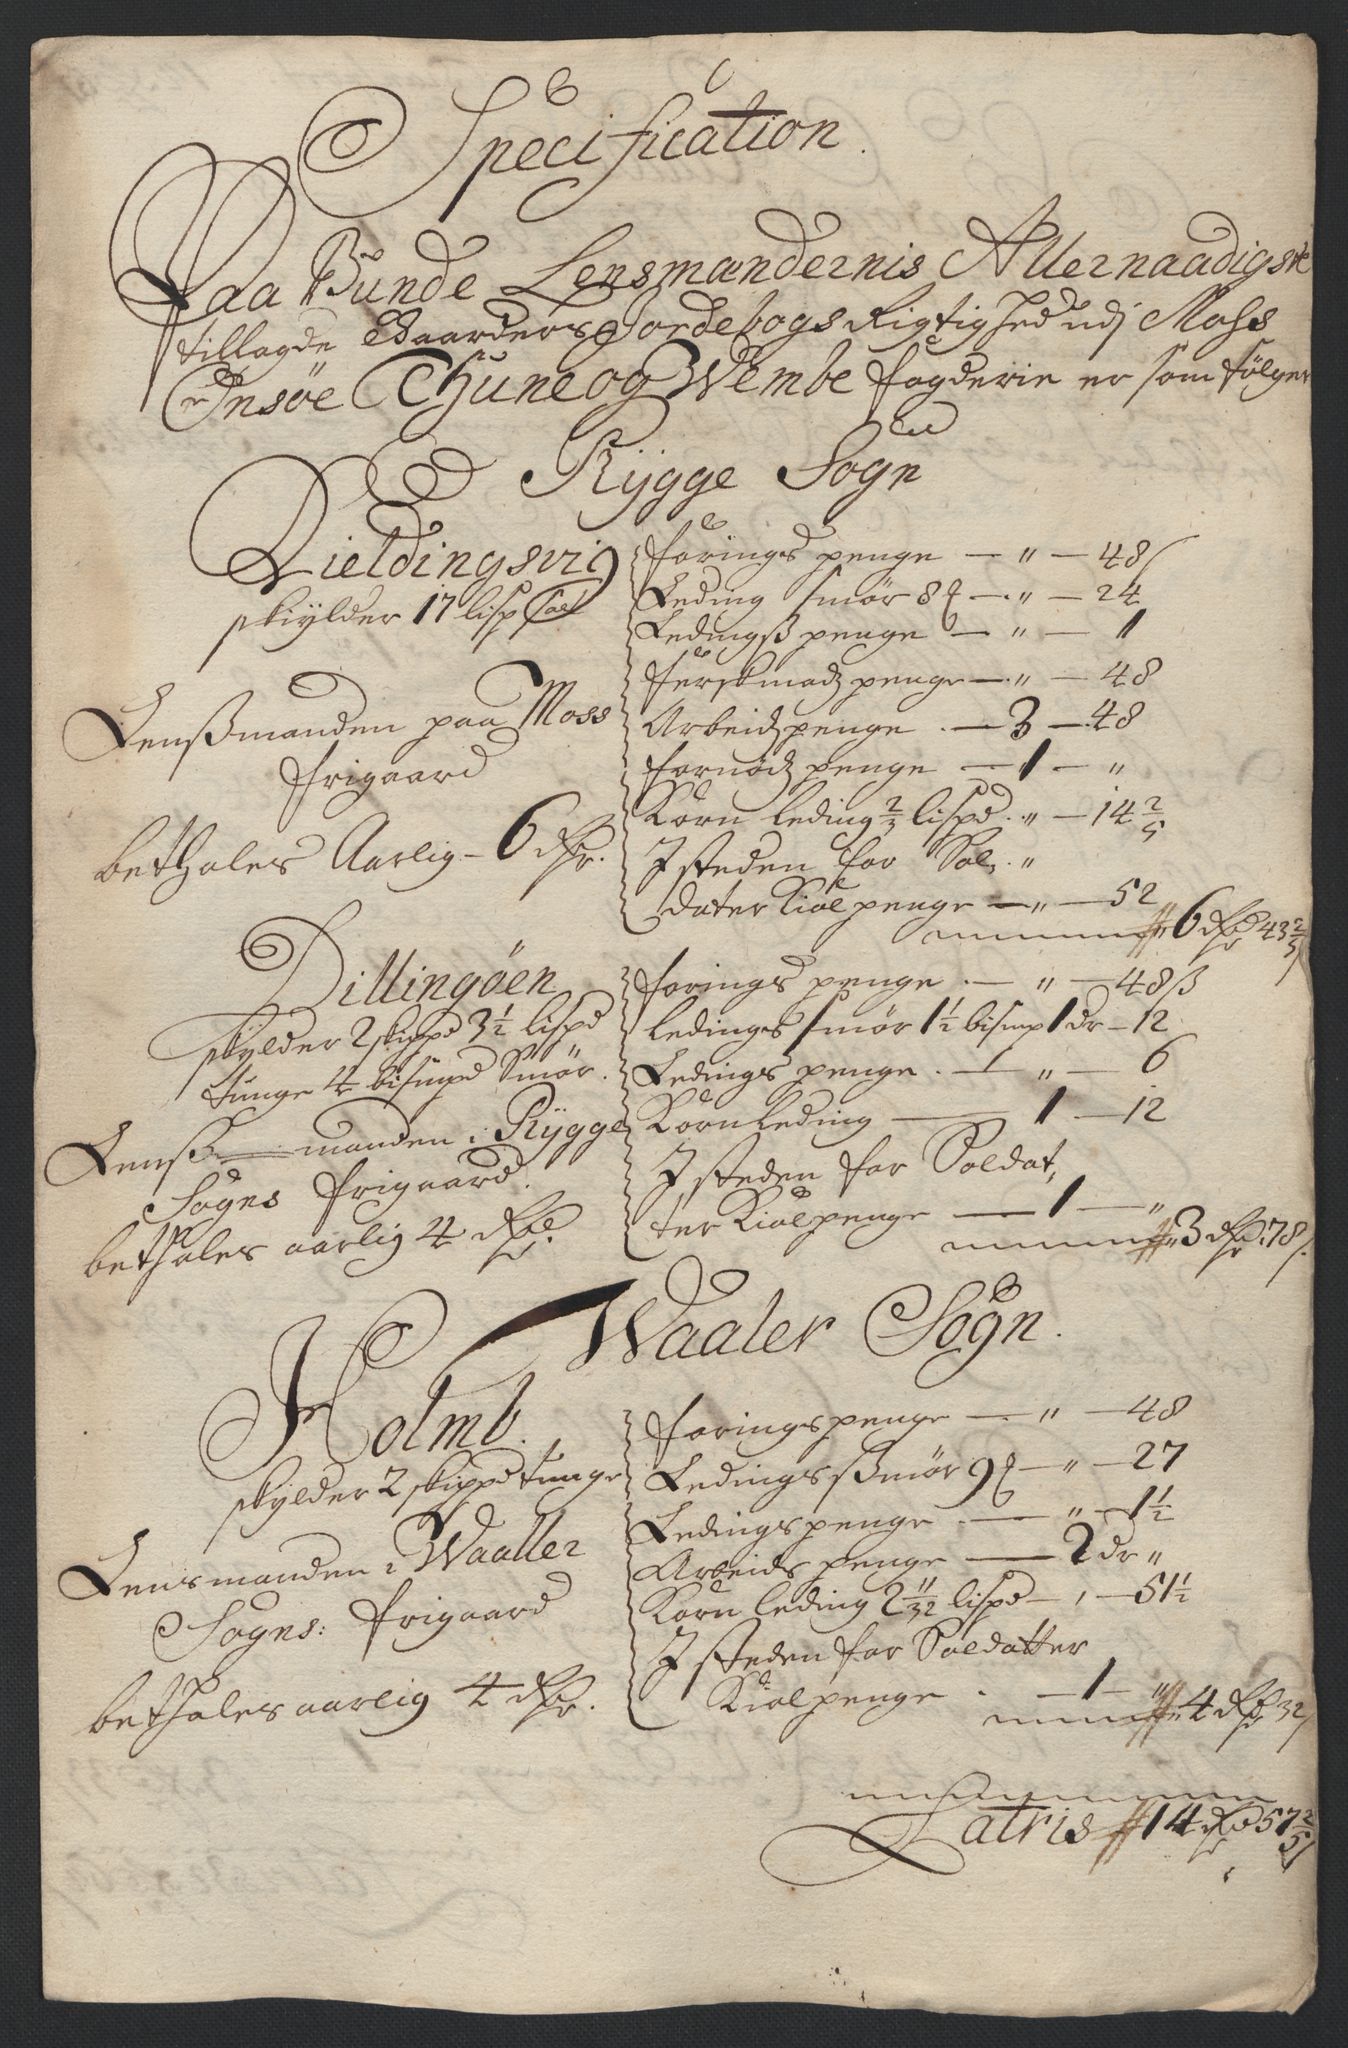 Specification
Paa Bunde Lensmændernis Allernaadigste
tillagde Gaarders Jordebogs Rigtighed udj Moss
Onsøe Thune og Wembe fogderie er som følger
Rÿgge Sogn
Dieldingsvig
skÿlder 17 lisp Salt
Lenßmanden paa Moss
frigaard
bethales Aarlig - 6 dlr.
foringspenge — " — 48 s
Leding smør 8 ℔ — " — 24
Ledingß penge — " — 1
ferskmadz penge — " — 48
Arbeidzpenge — 3 — 48
fornødz penge — 1 — "
Korn Leding 2/3 lispd — " — 14 2/5
I steden for Sol "
dater Kiolpenge — " — 52
6 dlr 43 2/5 s
Dillingøen
skÿlder 2 skippd 3½ lispd
tunge 4 bismpd Smør
Lenß-manden i Rÿgge
Sogns frigaard
bethales aarlig 4 dlr.
forings penge — " — 48 ß
ledings smør 1½ bismp 1 dr — 12
Ledings penge — " — 6
Korn Leding — 1 — 12
I steden for Soldat,
ter Kiolpenge — 1 — "
3 dlr 78 s.
Waaler Sogn.
Holmb.
skÿlder 2 skippd tunge
Lensmanden i Waaller
Sogns: frigaard
bethales aarlig 4 dlr.
foringspenge — " — 48
Ledingsßmør 9 ℔ — " — 27
Ledingspenge — " — 1½
Arbeids penge — 2 dr "
Korn leding 2 11/32 lispd — , — 51½
I steden for Soldatter
Kiolpenge — 1 — "
4 dlr 32 s
Latris 14 dlr 57 2/5 s